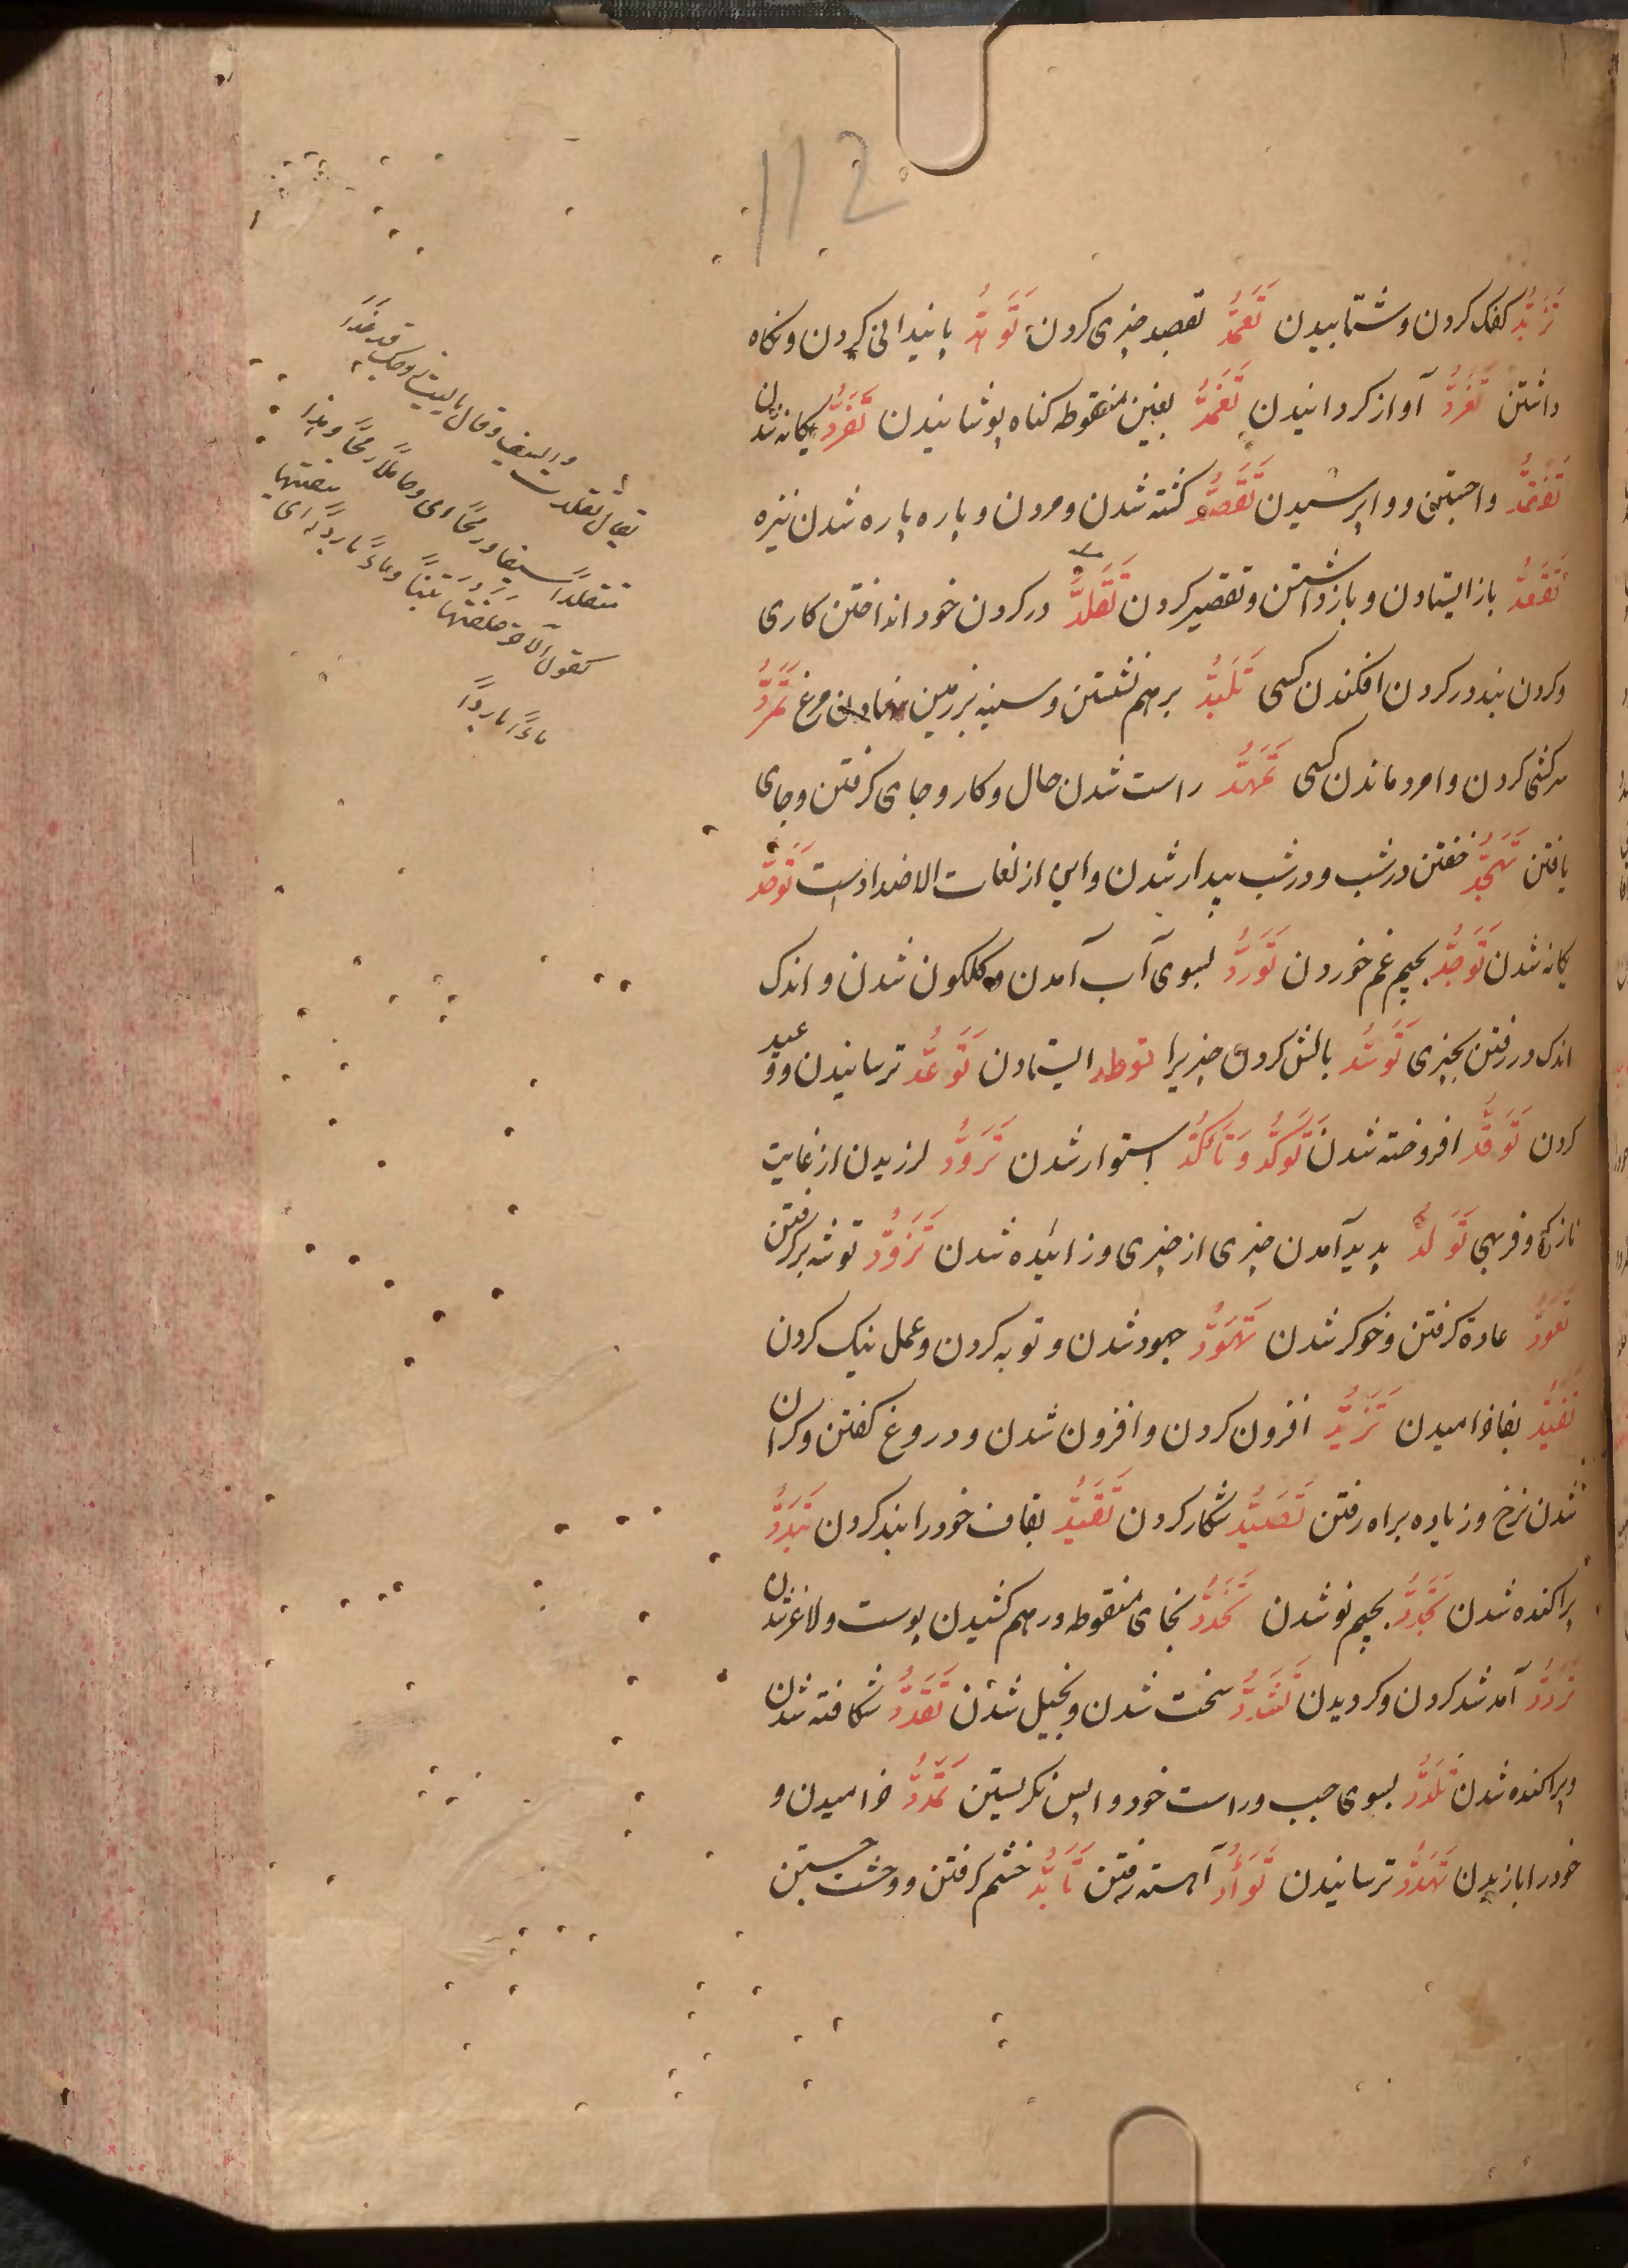 112
تَزَبُّد کفک کردن و شتابیدن تَعَمُّد بقصد چیزی کردن تَوَتُّد پایندانی کردن و نکاه
داشتن تَغَرُّد آواز کردانیدن تَغَمُّد بغین منقوطه کناه پوشانیدن تَفَرُّد یکانه شدن
تَفَقُّد واجستن و واپرسیدن تَقَصُّد کشته شدن و مردن و پاره پاره شدن نیزه
تَقَعُّد باز ایستادن و بازداشتن و تقصیر کردن تَقَلُّد در کردن خود انداختن کاری
و کردن بند در کردن افکندن کسی تَلَبُّد بر هم نشستن و سینه بر زمین نهادن مرغ تَمَرُّد
سرکشی کردن و امرد ماندن کسی تَمَهُّد راست شدن حال و کار و جای کرفتن و جای
یافتن تَهَجُّد خفتن در شب و در شب بیدار شدن و این از لغات الاضداد است تَوَحُّد
یکانه شدن تَوَجُّد بجیم غم خوردن تَوَرُّد بسوی آب آمدن و کلکون شدن و اندک
اندک در رفتن بچیزی تَوَسُّد بالش کردن چیزیرا توطد ایستادن تَوَعُّد ترسانیدن و وعید
کردن تَوَقُّد افروخته شدن تَوَکُّد وَ تَأَکُّد استوار شدن تَرَوُّد لرزیدن از غایت
نازکی و فربهی تَوَلُّد پدید آمدن چیزی از چیزی و زائیده شدن تَزَوُّد توشه برکرفتن
تَعَوُّد عادة کرفتن و خوکر شدن تَهَوُّد جهود شدن و توبه کردن و عمل نیک کردن
تَفَیُّد بفا خرامیدن تَزَیُّد افزون کردن و افزون شدن و دروغ کفتن و کران
شدن نرخ و زیاده براه رفتن تَصَیُّد شکار کردن تَقَیُّد بقاف خود را بند کردن تَبَدُّد
پراکنده شدن تَجَدُّد بجیم نو شدن تَخَدُّد بخای منقوطه در هم کشیدن پوست و لاغر شدن
تَرَدُّد آمد شد کردن و کردیدن تَشَدُّد سخت شدن و بخیل شدن تَقَدُّد شکافته شدن
و پراکنده شدن تَلَدُّد بسوی چپ و راست خود واپس نکریستن تَمَدُّد خرامیدن و
خود را بازیدن تَهَدُّد ترسانیدن تَوَأُّد آهسته رفتن تَأَبُّد خشم کرفتن و وحشت جستن
یقال تقلدت السیف وقال یا لیت زوجک قد غدا
متقلدا سیفا ورمحا ای وحاملا رمحا وهذا
کقول الآخر علفتها تبنا وماء باردا ای سقیتها
ماءً باردًا